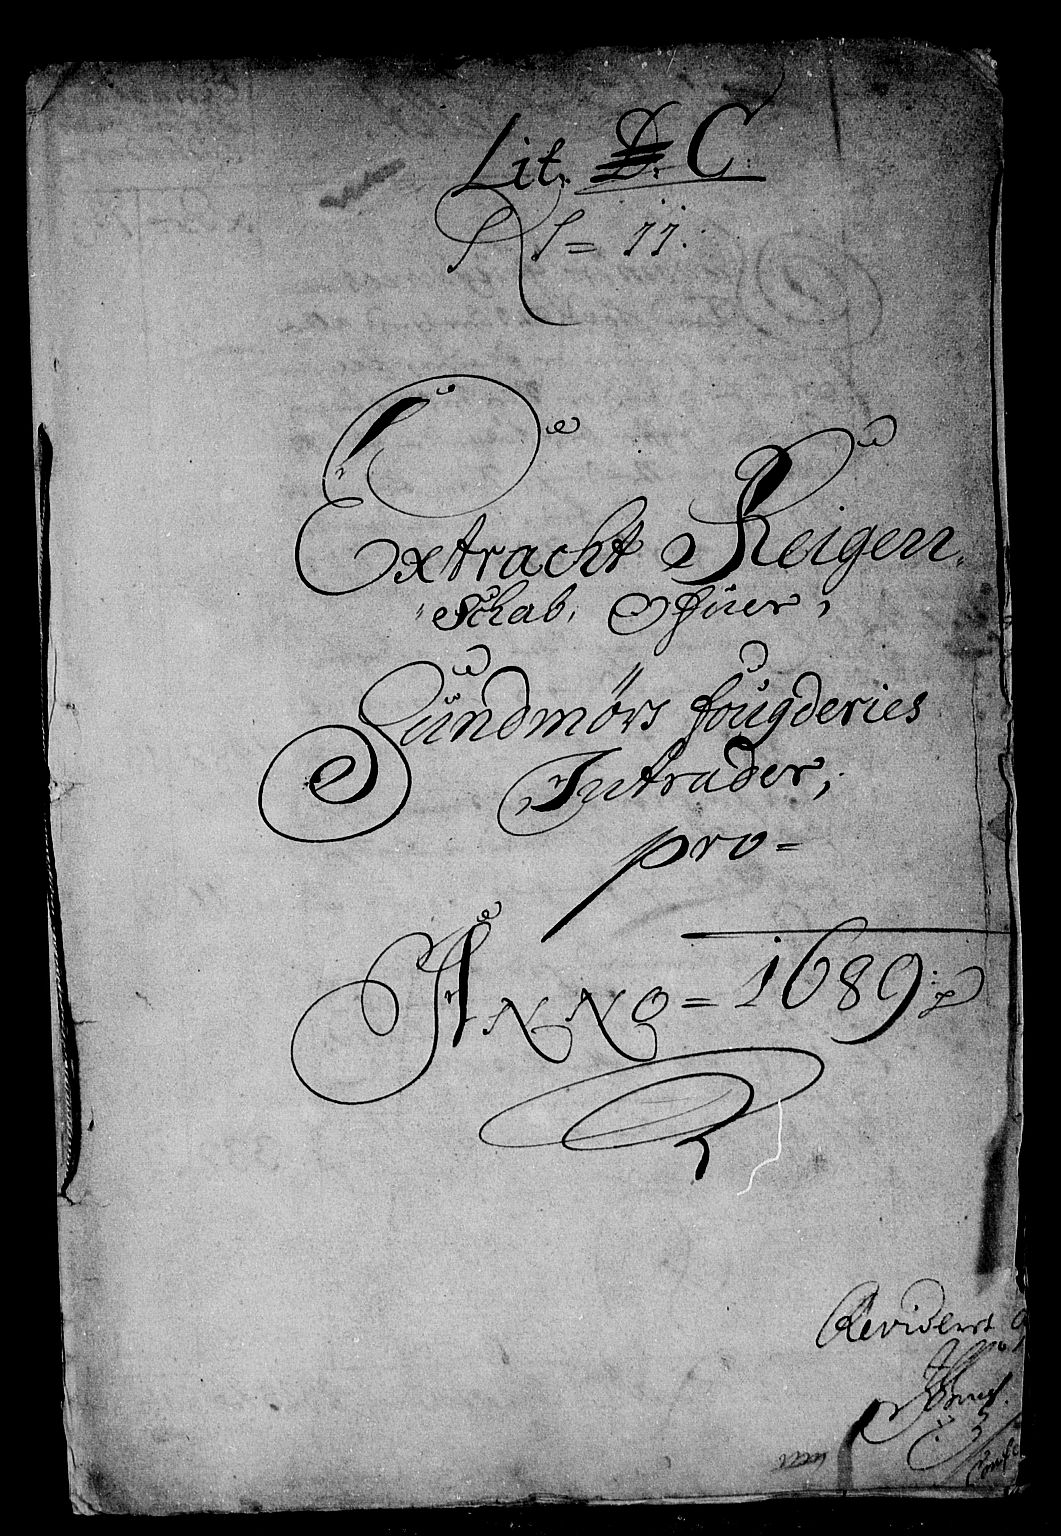 Lit. D. C
Extracht Reigen
Schab. Ofüer,
Sündmörs fougderies
Intrader,
pro=
Anno= 1689:
Revidert